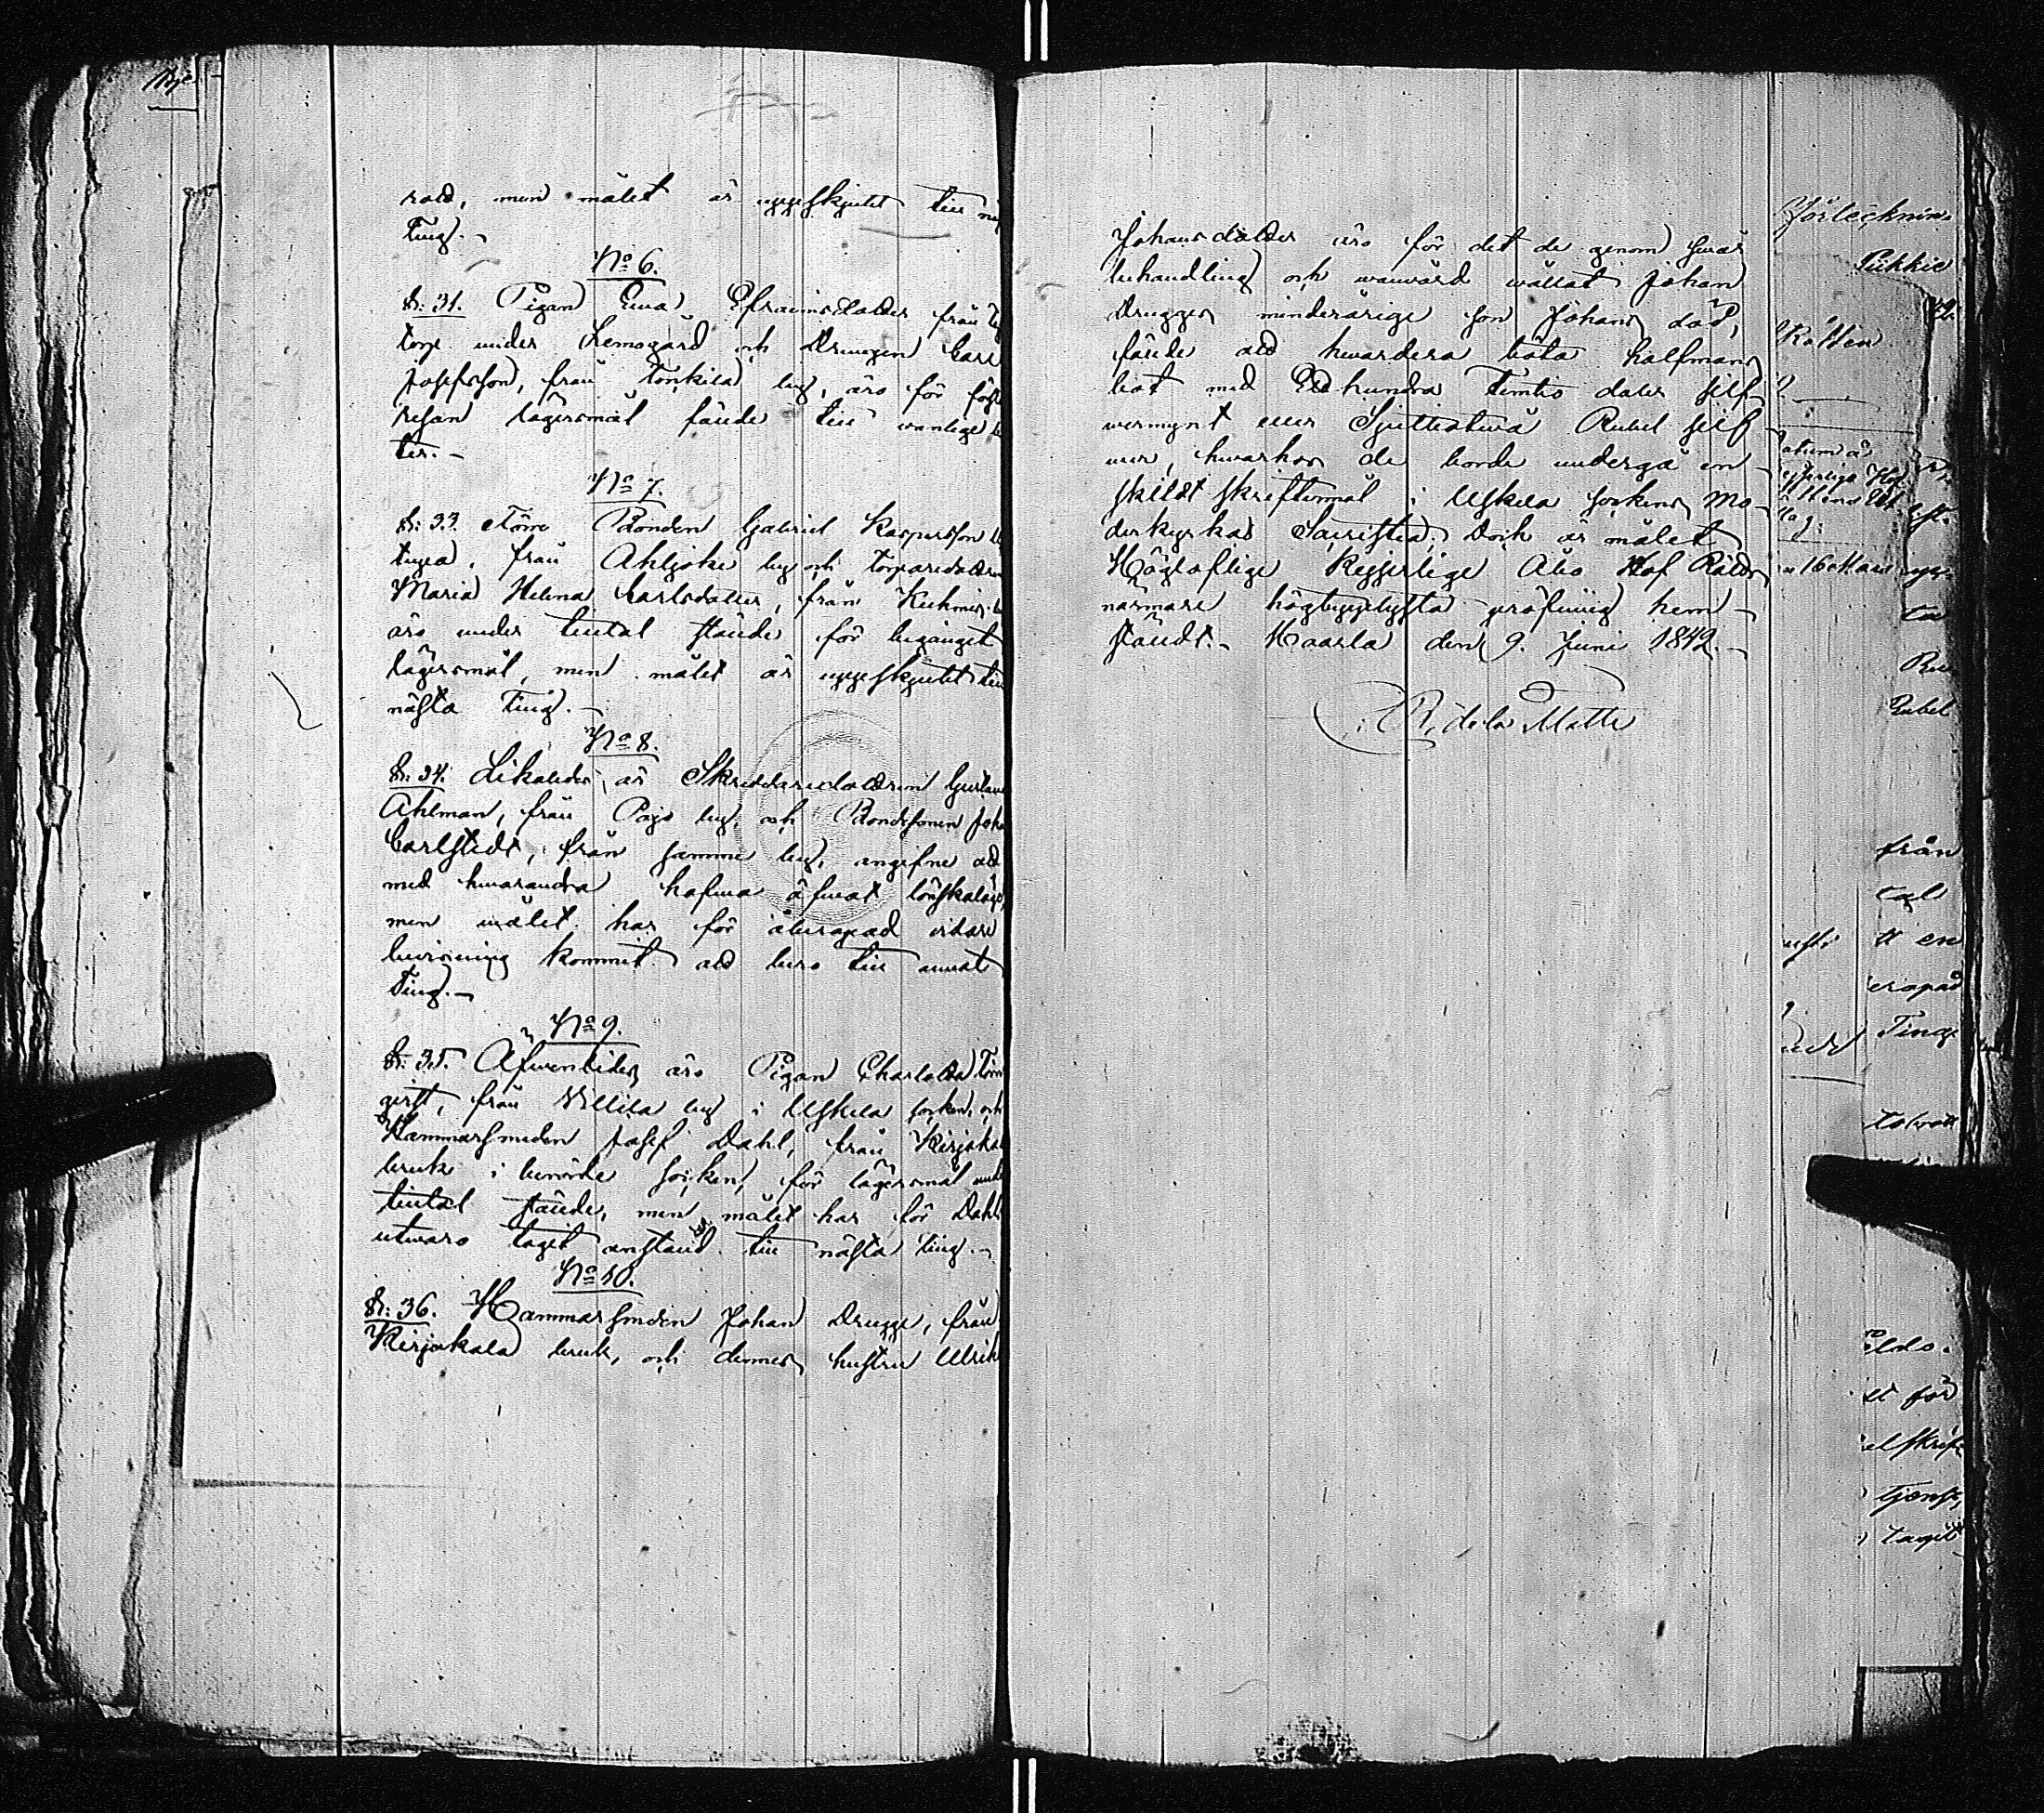 rad, men målet är uppskjutit till
Ting.
No 6.
§. 31. Pigan Eva Efraimsdotter från
torp under Lemogård och Drängen Carl
Josefsson, från Tonkila by, äro för första
resan lägersmål fände till vanlige
ter.
No 7.
§. 33. Förre Bonden Gabriel Kaspersson
från Ahljoki by och torparedottren
Maria Helena Carlsdotter, från Kuhmis
äro under tiltal stände för begånget
lägersmål, men målet är uppskjutit till
nästa Ting.
No 8.
§. 34. Likaledes är Skreddaredottren Gustava
Ahlman, från Pajo by, och Bondesonen Joh
Carlstedt, från samme by, angifne att
med hvarandra hafva öfvat lönskaläge,
men målet har för åberopad vidare
bevisning kommit att bero till annat
Ting.
No 9.
§. 35. Äfvenledes äro Pigan Charlotta Törn
qvist, från by i Uskela socken, och
Hammarsmeden Josef Dahl, från Kirjakala
bruk i berörde socken, för lägersmål under
tiltal stände, men målet har för Dahls
utevaro tagit anstånd till nästa Ting.
No 10.
§. 36. Hammarsmeden Johan Drugge, från
Kirjakala bruk, och dennes hustru Ulrika
Johansdotter äro för det de genom svår
behandling och vanvård vållat Johan
Drugges minderårige son Johans död,
fände att hvardera böta half mans
bot med Etthundra Femtio daler silf-
vermynt eller Sjuttiotvå Rubel silf-
ver, hvarhos de borde undergå en-
skildt skriftermål i Uskela sockens Mo-
derkyrkas Sacristia; Dock är målet
Höglofliga Kejserliga Åbo Hof Rätts
närmare högtupplysta pröfning hem-
stäldt. Haarla den 9. Juni 1842.
R. de la Motte
Förteckning
Pikkie
Rätten
16 Mars
ta
Ru
Rubel
från
tal
en
eropad
Ting
för
skrif
tjenst,
tagit